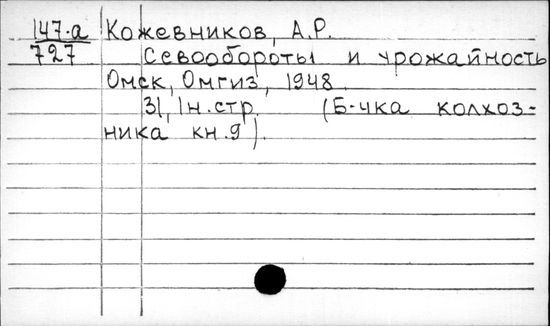 147-а Кожевников, А.Р.
727 Севообороты и урожайность
Омск, Омгиз, 1948.
31, 1н.стр. (Б-чка колхоз-
ника кн.9).